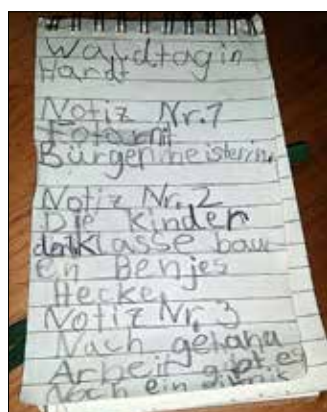 Waldtag in
Hardt
Notiz Nr. 1
Foto mit
Bürgermeisterin
Notiz Nr. 2
Die Kinder
der Klasse bau
en Benjes
Hecke
Notiz Nr. 3
Nach getana
Arbeit gibt es
Noch ein